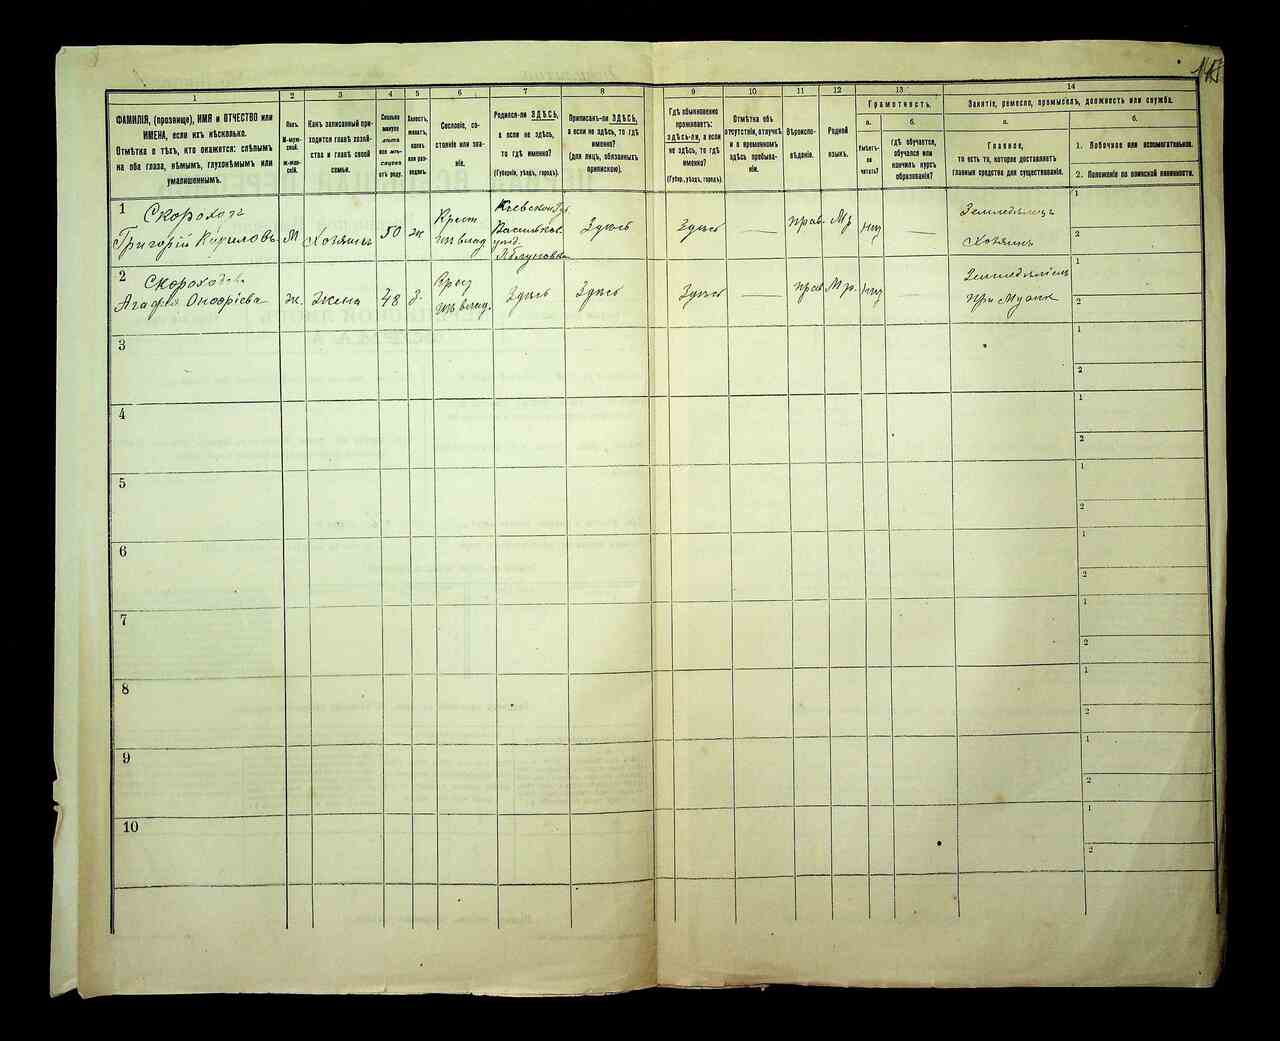 1 2 3 4 5 6 7 8 9 10 11 12 13 14
ФАМИЛІЯ, (прозвище), ИМЯ и ОТЧЕСТВО или
ИМЕНА, если ихъ нѣсколько.
Отмѣтка о тѣхъ, кто окажется: слѣпымъ
на оба глаза, нѣмымъ, глухонѣмымъ или
умалишеннымъ.
Полъ.
М-муж-
ской.
Ж-жен-
скій.
Какъ записанный при-
ходится главѣ хозяй-
ства и главѣ своей
семьи.
Сколько
минуло
лѣтъ
или мѣ-
сяцевъ
отъ роду.
Холостъ,
женатъ,
вдовъ
или раз-
веденъ.
Сословіе, со-
стояніе или зва-
ніе.
Родился-ли ЗДѢСЬ,
а если не здѣсь,
то гдѣ именно?
(Губернія, уѣздъ, городъ).
Приписанъ-ли ЗДѢСЬ,
а если не здѣсь, то гдѣ
именно?
(для лицъ, обязанныхъ
припискою).
Гдѣ обыкновенно
проживаетъ:
ЗДѢСЬ-ли, а если
не здѣсь, то гдѣ
именно?
(Губер., уѣздъ, городъ).
Отмѣтка объ
отсутствіи, отлучкѣ
и о временномъ
здѣсь пребыва-
ніи.
Вѣроиспо-
вѣданіе.
Родной
языкъ.
Грамотность.
а.
Умѣетъ-
ли
читать?
б.
гдѣ обучается,
обучался или
кончилъ курсъ
образованія?
Занятіе, ремесло, промыселъ, должность или служба.
а.
Главное,
то есть то, которое доставляетъ
главныя средства для существованія.
б.
1. Побочное или вспомогательное.
2. Положеніе по воинской повинности.
1
Скороходъ
Григорій Кириловъ
М
Хозяинъ
50
ж
Крест
изъ влад.
Кіевской Губ
Васильков.
уѣзд.
Яблуновка
Здѣсь
Здѣсь
—
прав.
Мр
Нѣтъ
—
Земледѣлецъ
Хозяинъ
1
2
2
Скороходова
Агафія Онофріева
ж.
Жена
48
з.
Крес
изъ влад.
Здѣсь
Здѣсь
Здѣсь
—
прав
Мр.
Нѣтъ
—
Земледѣліемъ
При Мужѣ
1
2
3
1
2
4
1
2
5
1
2
6
1
2
7
1
2
8
1
2
9
1
2
10
1
2